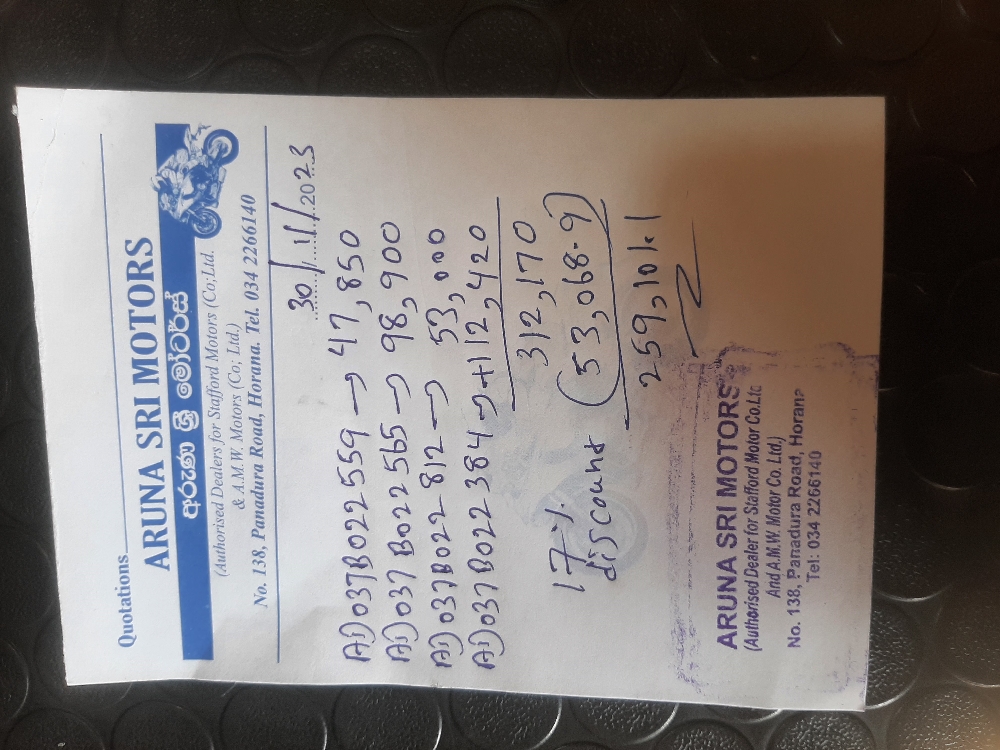 Quotations
ARUNA SRI MOTORS
අරුණ ශ්‍රී මෝටර්ස්
(Authorised Dealers for Stafford Motors (Co;Ltd.
& A.M.W. Motors (Co; Ltd.)
No. 138, Panadura Road, Horana. Tel. 034 2266140
30/11/2023
A1)037B022559 → 47,850
A1)037B022565 → 98,900
A1)037B022812 → 53,000
A1)037B022384 → +112,420
312,170
17% discount (53,068.9)
259,101.1
ARUNA SRI MOTORS
(Authorised Dealer for Stafford Motor Co.Ltd
And A.M.W. Motor Co. Ltd.)
No. 138, Panadura Road, Horana
Tel: 034 2266140